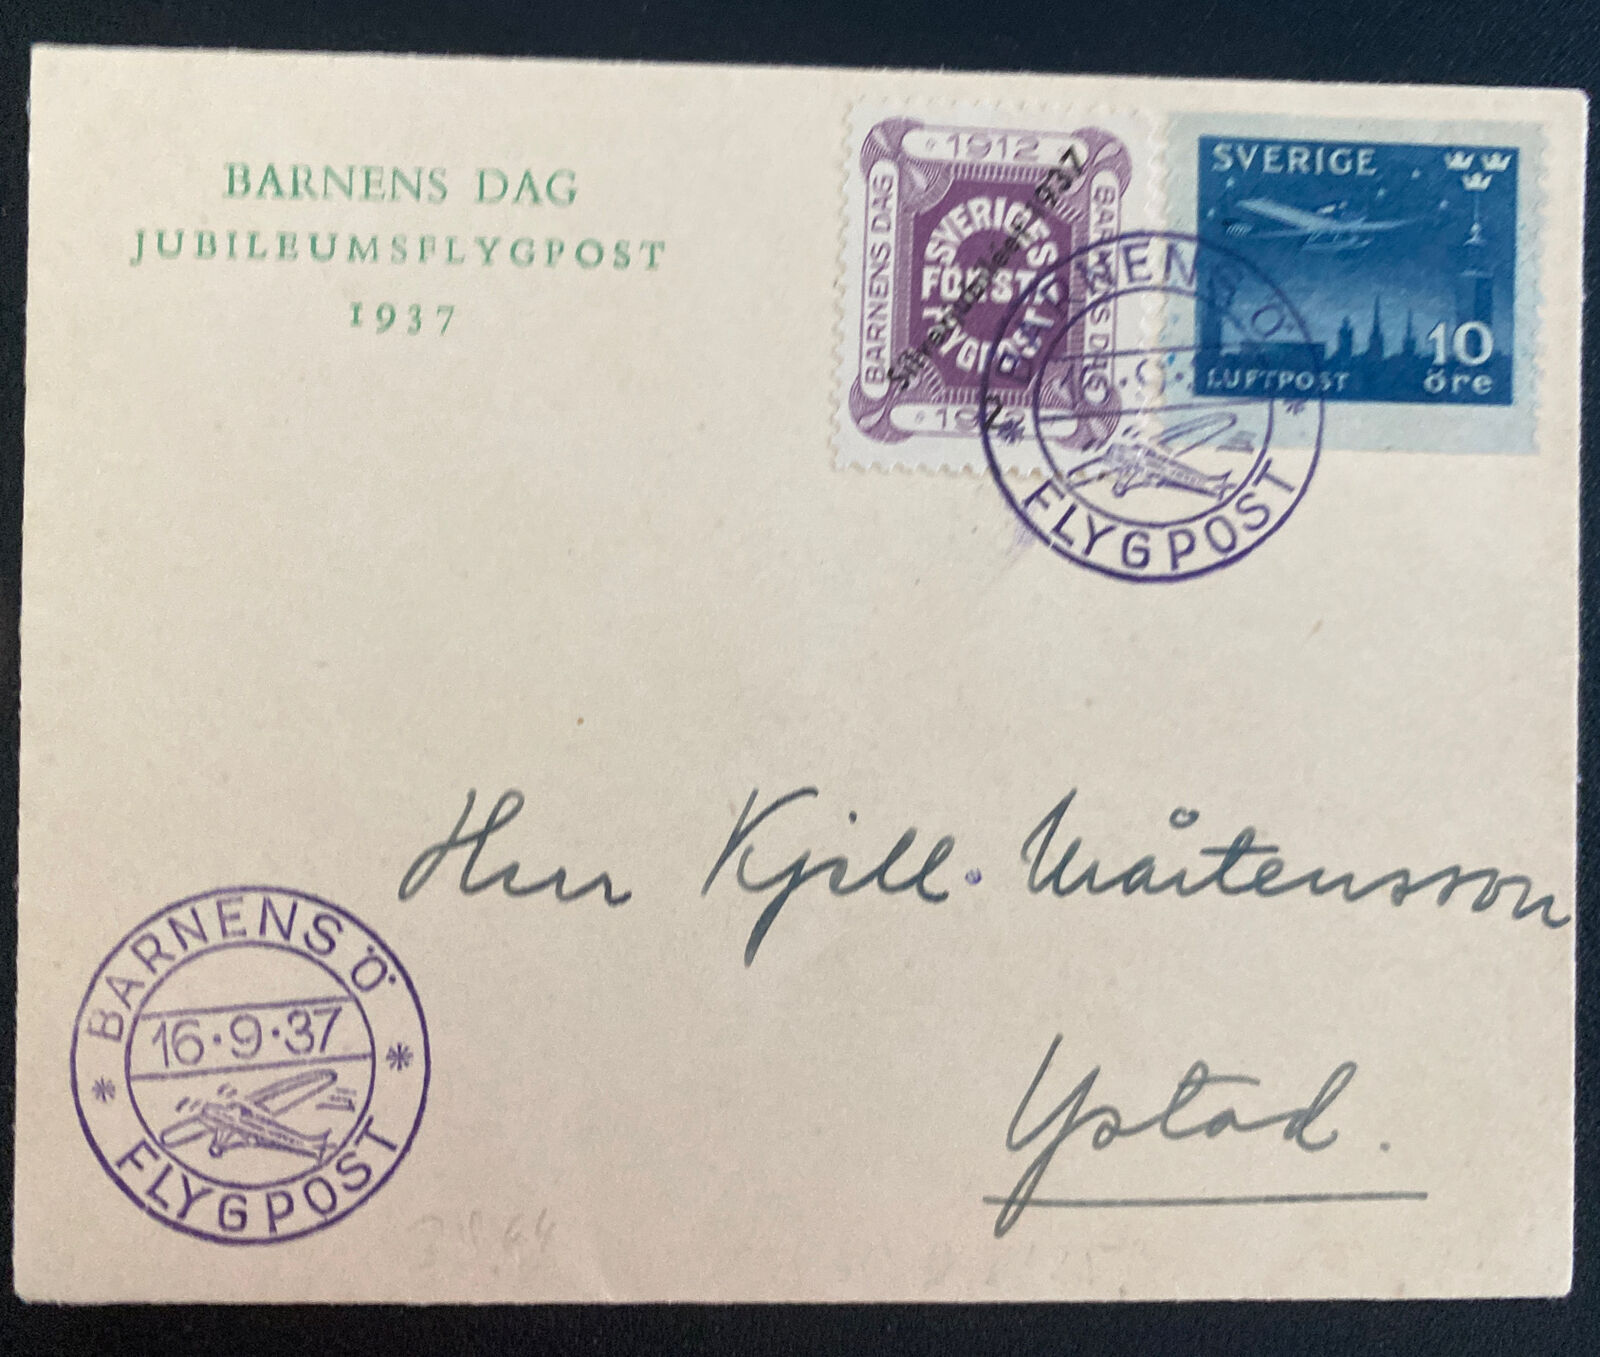 BARNENS DAG
JUBILEUMSFLYGPOST
1937
1912
BARNENS DAG
SVERIGES
FÖRSTA
FLYGPOST
BARNENS DAG
1912
1937
SVERIGE
10
öre
LUFTPOST
BARNENS Ö
FLYGPOST
Herr Kjell Mårtensson
Ystad.
BARNENS Ö
16·9·37
FLYGPOST